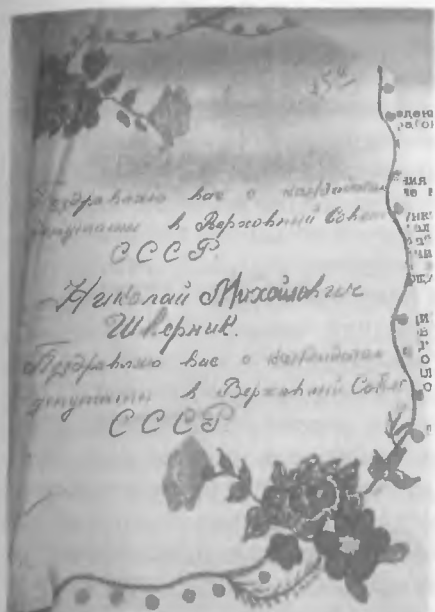 Поздравляю вас с кандидатом
депутаты в Верховный Совет
СССР.
Николай Михайлович
Шверник.
Поздравляю вас с кандидатом
депутаты в Верховный Совет
СССР